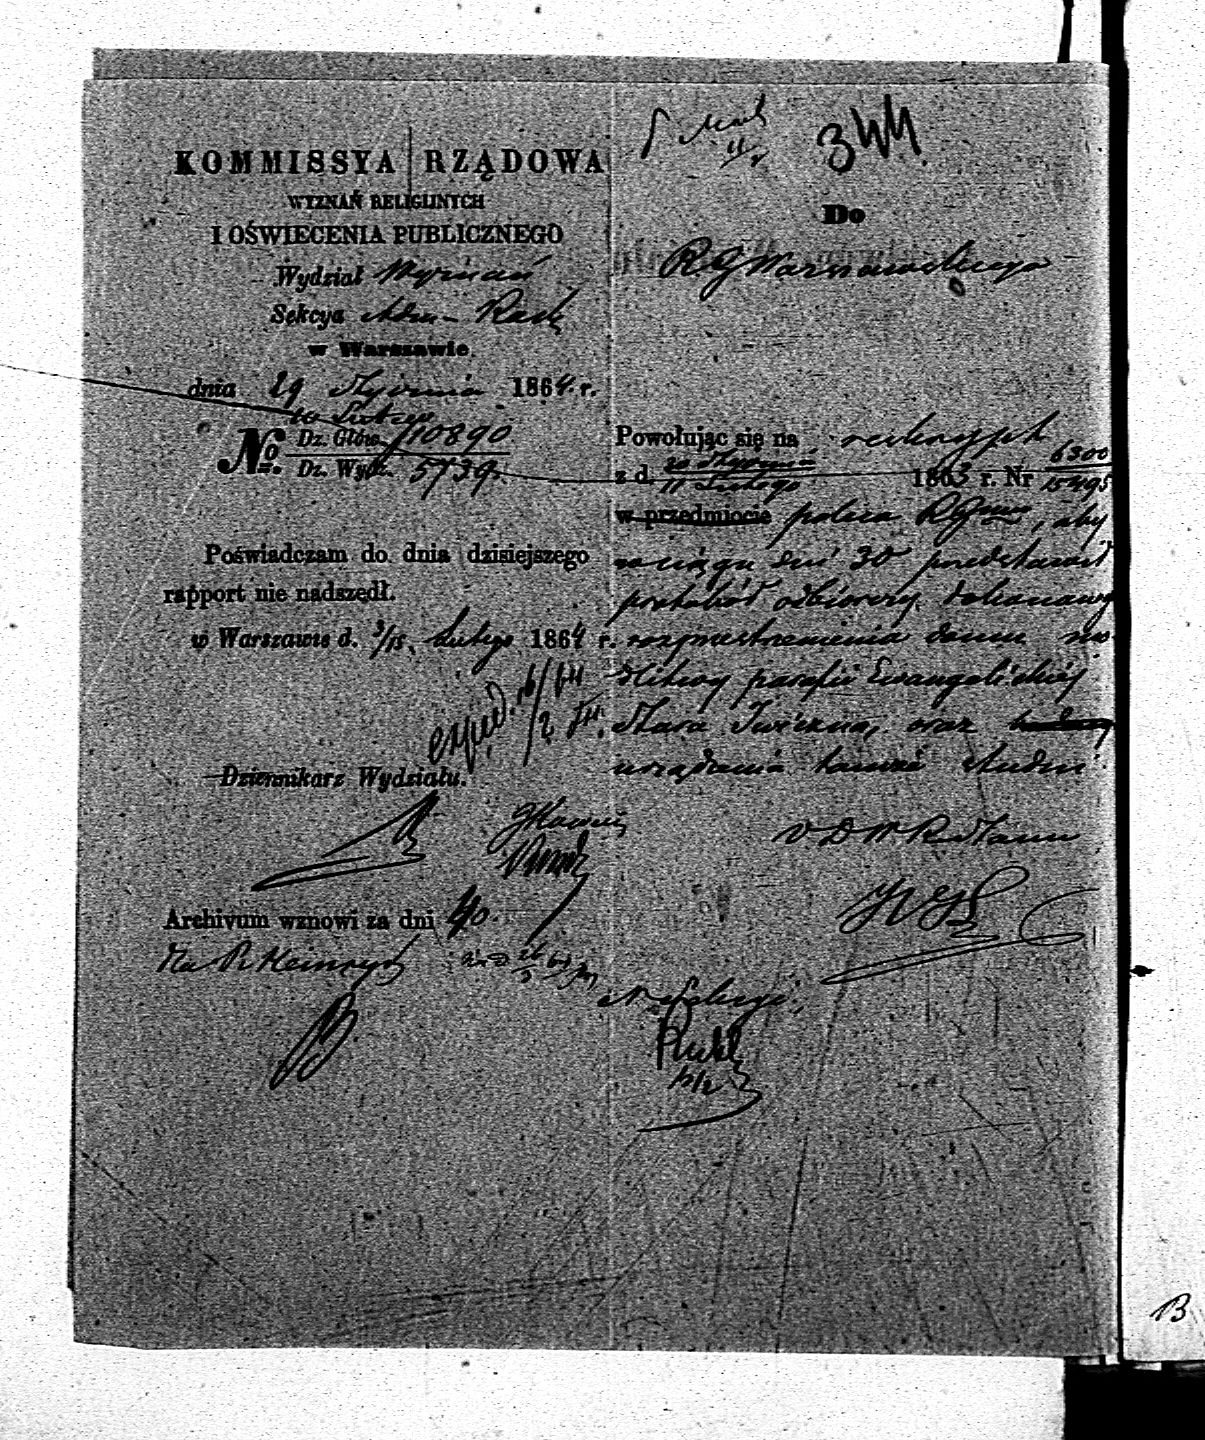 344
KOMMISSYA RZĄDOWA
WYZNAŃ RELIGIJNYCH
I OŚWIECENIA PUBLICZNEGO
Wydział Wyznań
Sekcya Adm-
w Warszawie.
dnia 29 Stycznia 1864. r.
10 Lutego
No. Dz. Głów. 10890
Dz. Wydz. 5739.
Poświadczam do dnia dzisiejszego
rapport nie nadszedł.
w Warszawie d. 3/15. Lutego 1864 r.
exped.
Dziennikarz Wydziału.
Archivum wznowi za dni 40.
Do
RGWarszawskiego
Powołując się na reskrypt
z d. 30 Stycznia 1863 r. Nr 6300
11 Lutego 15495
w przedmiocie poleca RGwi, aby
w ciągu dni 30 przedstawił
protokół odbiorczy dokonanego
rozprzestrzenienia domu mo-
dlitwy parafii Ewangelickiej
Stara Iwiczna, oraz
urządzenia tamże studni.
N. Sekcyi
B